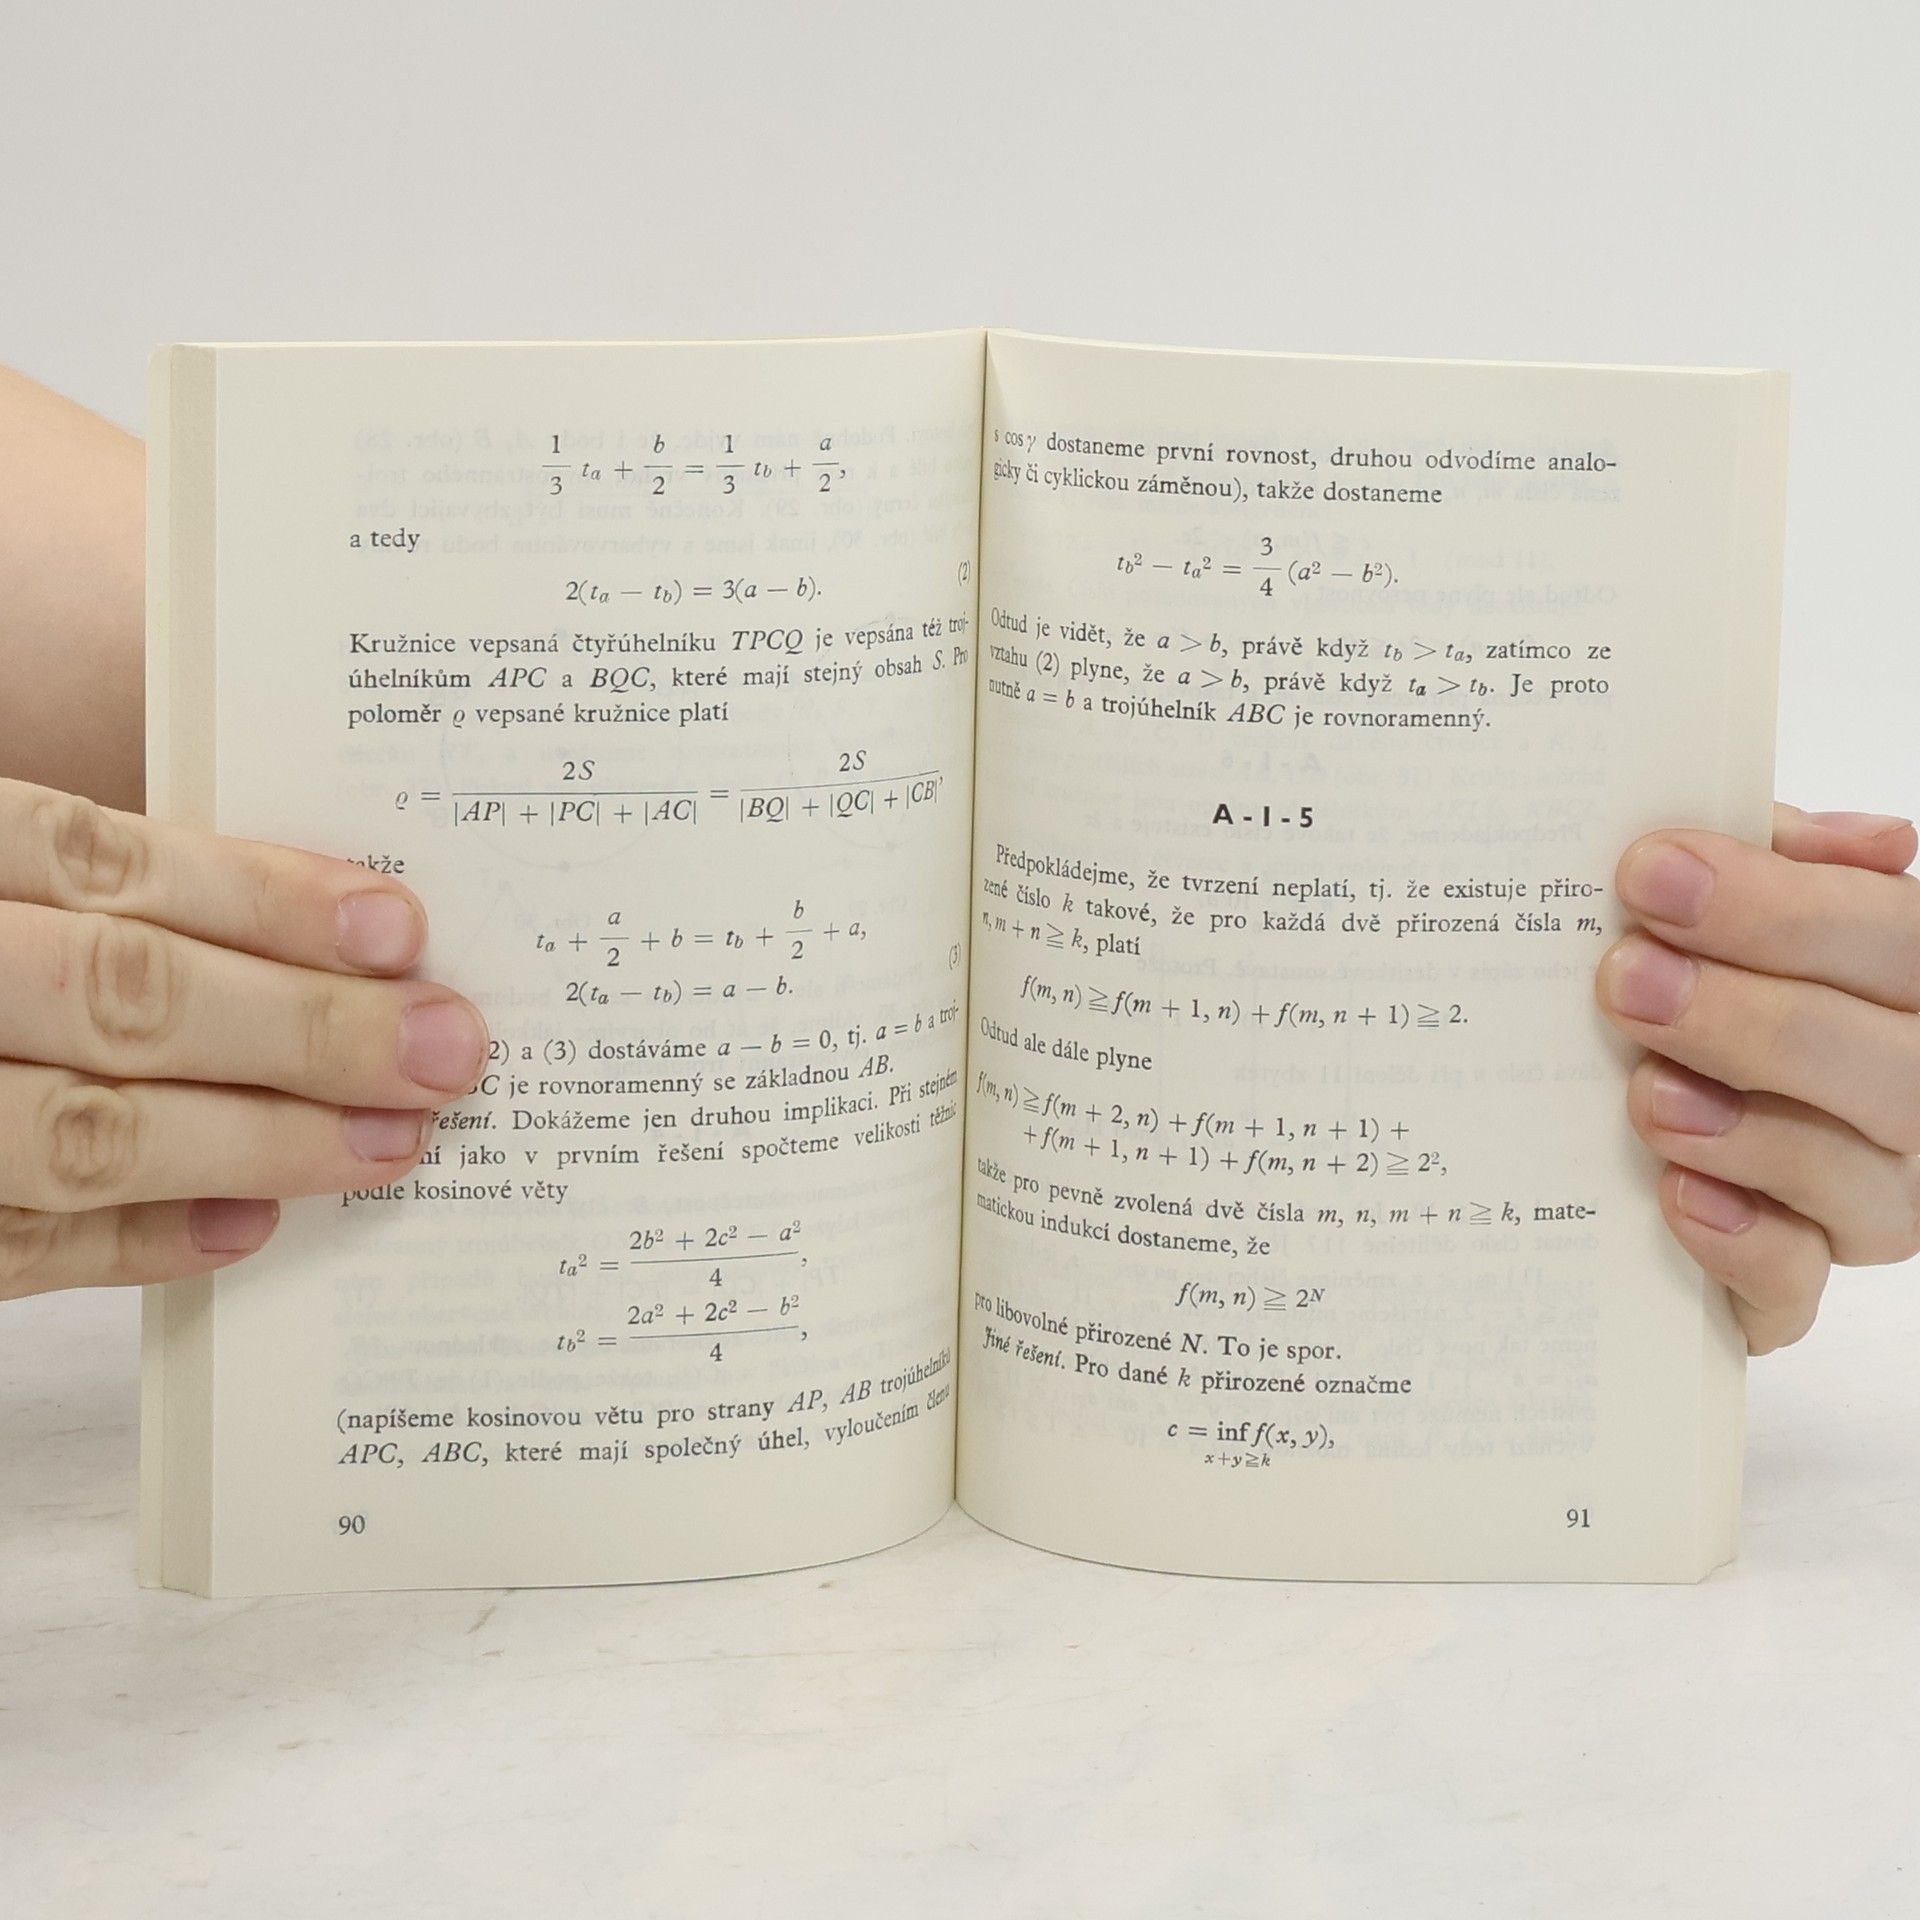 1/3 tₐ + b/2 = 1/3 t_b + a/2,
a tedy
2(tₐ — t_b) = 3(a — b). (2)
Kružnice vepsaná čtyřúhelníku TPCQ je vepsána též troj-
úhelníkům APC a BQC, které mají stejný obsah S. Pro
poloměr ϱ vepsané kružnice platí
ϱ = 2S / (|AP| + |PC| + |AC|) = 2S / (|BQ| + |QC| + |CB|),
takže
tₐ + a/2 + b = t_b + b/2 + a,
2(tₐ — t_b) = a — b. (3)
2) a (3) dostáváme a — b = 0, tj. a = b a troj-
BC je rovnoramenný se základnou AB.
řešení. Dokážeme jen druhou implikaci. Při stejném
jako v prvním řešení spočteme velikosti těžnic
podle kosinové věty
tₐ² = (2b² + 2c² — a²)/4,
t_b² = (2a² + 2c² — b²)/4,
(napíšeme kosinovou větu pro strany AP, AB trojúhelníků
APC, ABC, které mají společný úhel, vyloučením členu
90
s cos γ dostaneme první rovnost, druhou odvodíme analo-
gicky či cyklickou záměnou), takže dostaneme
t_b² — tₐ² = 3/4 (a² — b²).
Odtud je vidět, že a > b, právě když t_b > tₐ, zatímco ze
vztahu (2) plyne, že a > b, právě když tₐ > t_b. Je proto
nutně a = b a trojúhelník ABC je rovnoramenný.
A - I - 5
Předpokládejme, že tvrzení neplatí, tj. že existuje přiro-
zené číslo k takové, že pro každá dvě přirozená čísla m,
n, m + n ≧ k, platí
f(m, n) ≧ f(m + 1, n) + f(m, n + 1) ≧ 2.
Odtud ale dále plyne
f(m, n) ≧ f(m + 2, n) + f(m + 1, n + 1) +
+ f(m + 1, n + 1) + f(m, n + 2) ≧ 2²,
takže pro pevně zvolená dvě čísla m, n, m + n ≧ k, mate-
matickou indukcí dostaneme, že
f(m, n) ≧ 2ᴺ
pro libovolné přirozené N. To je spor.
Jiné řešení. Pro dané k přirozené označme
c = inf f(x, y),
x+y≧k
91